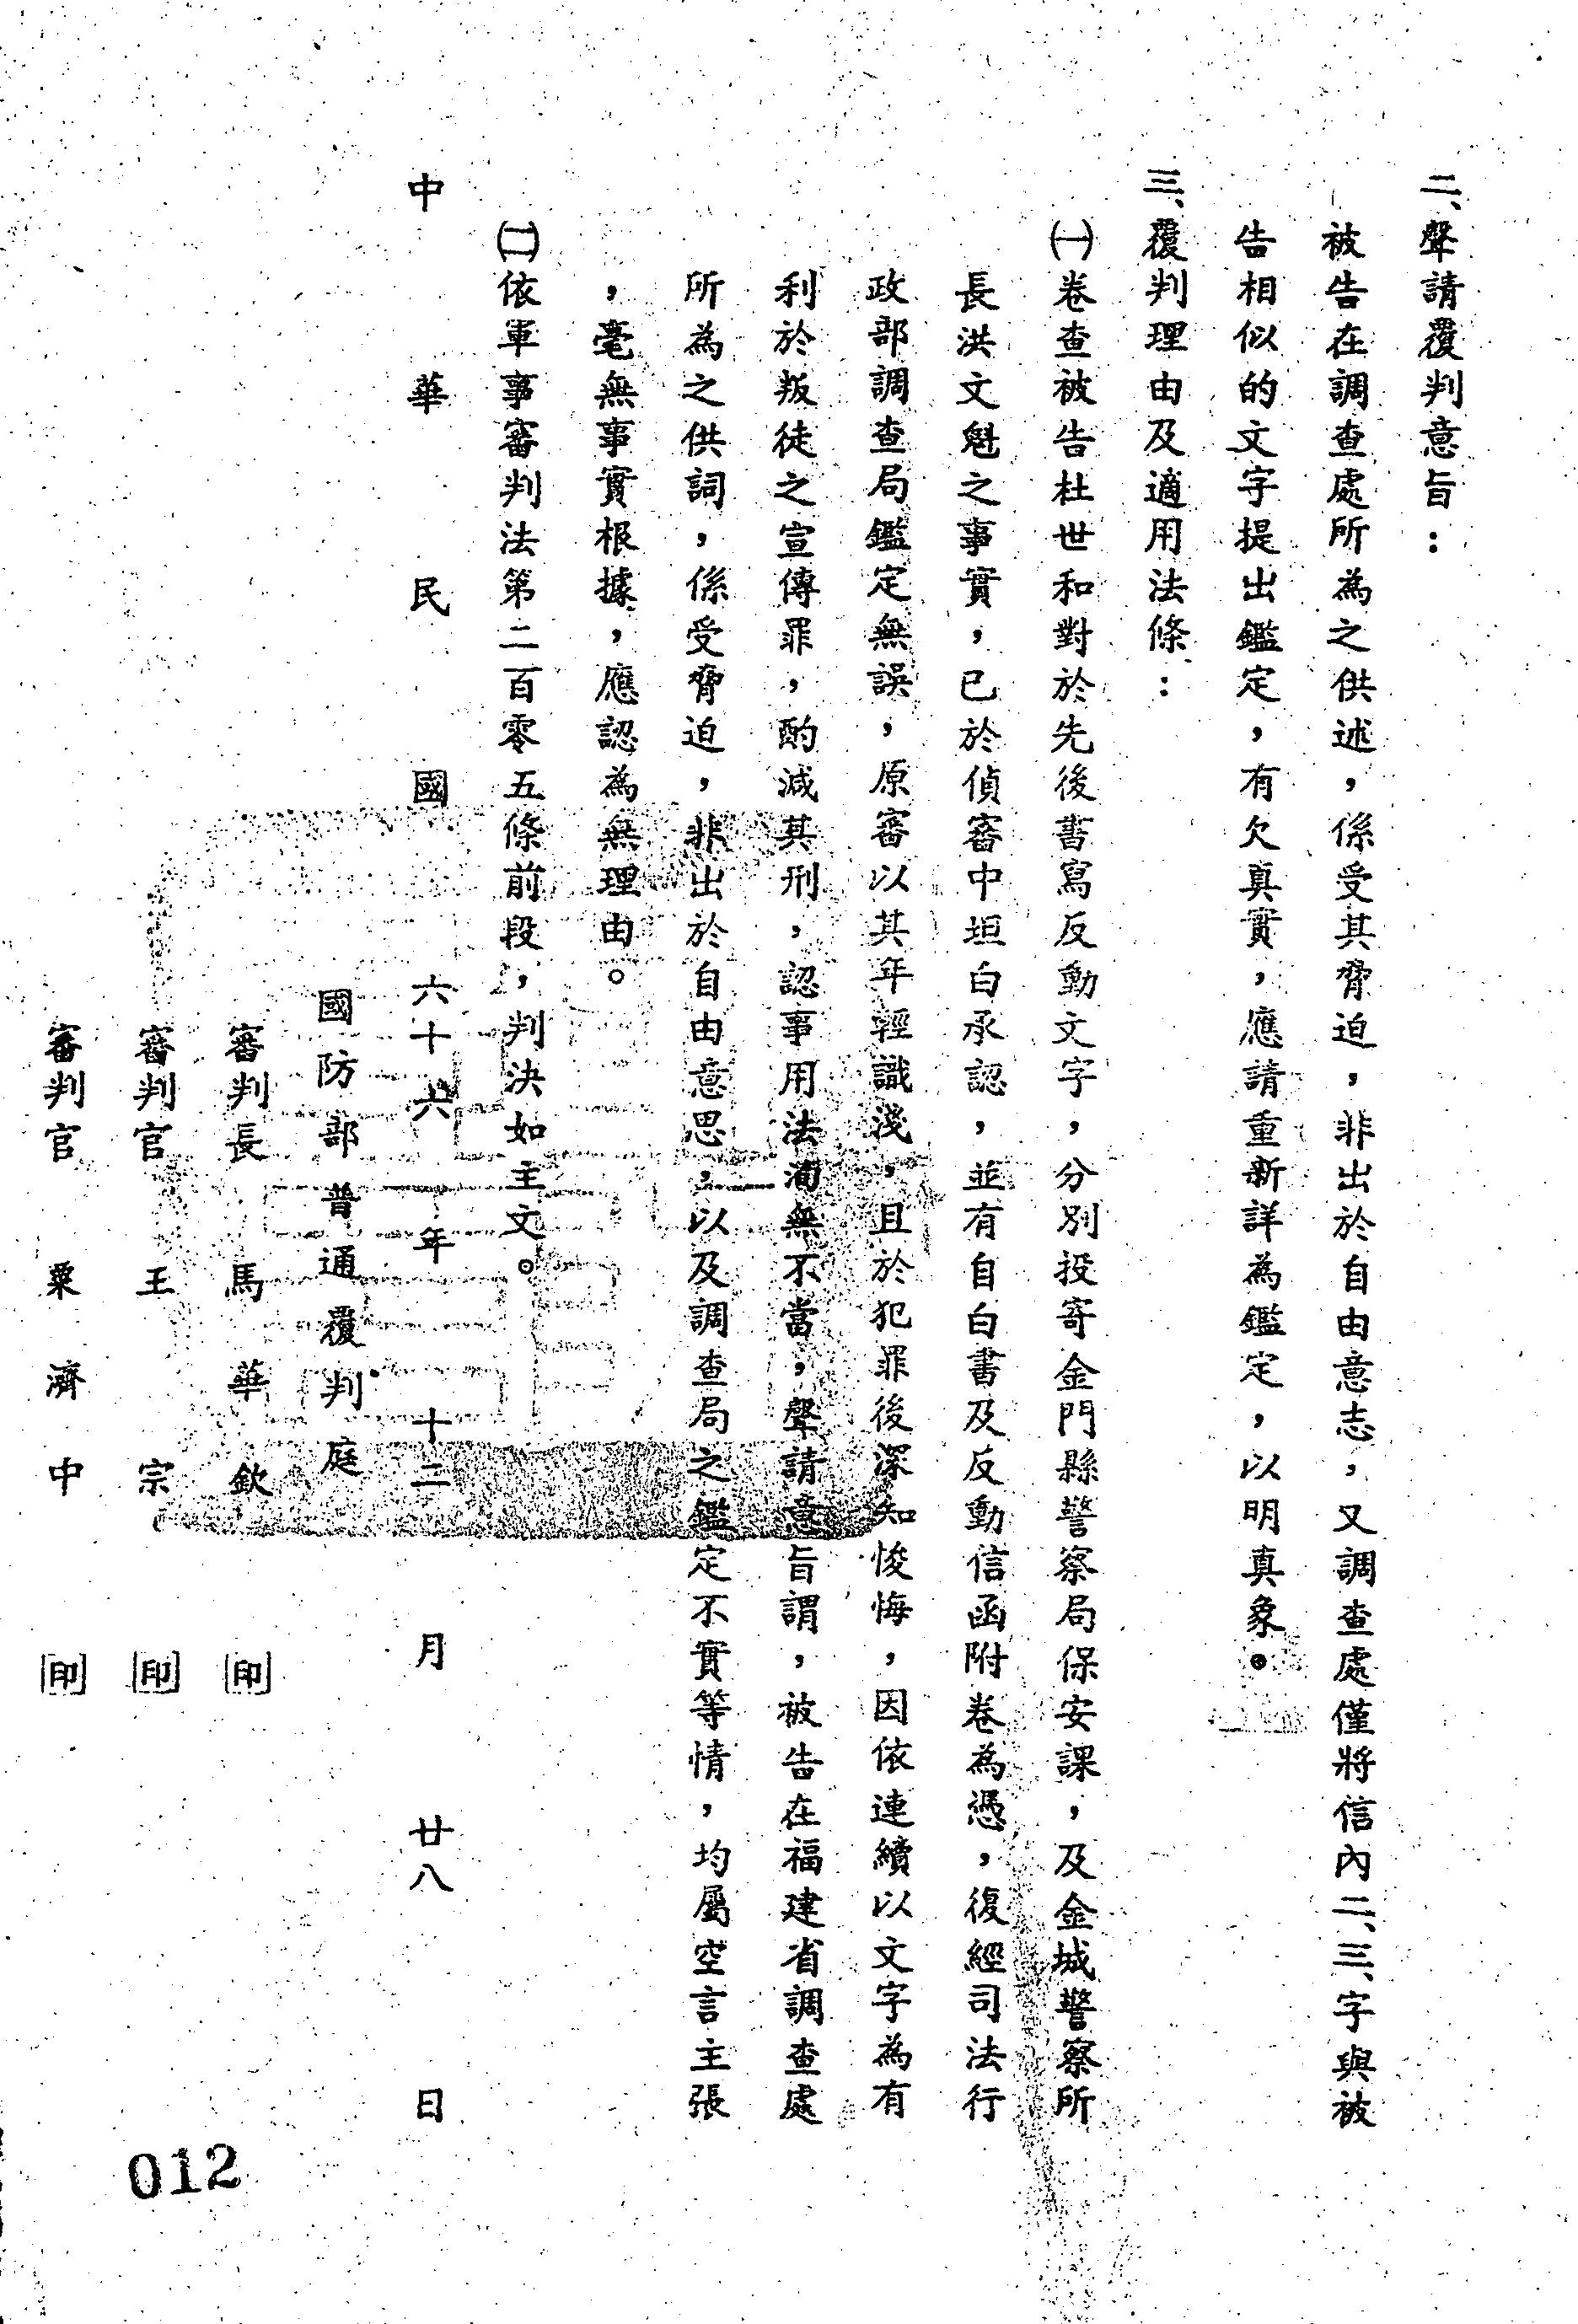 二、聲請覆判意旨：
被告在調查處所為之供述，係受其脅迫，非出於自由意志，又調查處僅將信內二、三、字與被
告相似的文字提出鑑定，有欠真實，應請重新詳為鑑定，以明真象。
三、覆判理由及適用法條：
㈠卷查被告杜世和對於先後書寫反動文字，分別投寄金門縣警察局保安課，及金城警察所
長洪文魁之事實，已於偵審中坦白承認，並有自白書及反動信函附卷為憑，復經司法行
政部調查局鑑定無誤，原審以其年輕識淺，且於犯罪後深知悛悔，因依連續以文字為有
利於叛徒之宣傳罪，酌減其刑，認事用法洵無不當，聲請意旨謂，被告在福建省調查處
所為之供詞，係受脅迫，非出於自由意思，以及調查局之鑑定不實等情，均屬空言主張
，毫無事實根據，應認為無理由。
㈡依軍事審判法第二百零五條前段，判決如主文。
中華民國六十六年十二月廿八日
國防部普通覆判庭
審判長 馬華欽 印
審判官 王宗 印
審判官 粟濟中 印
012